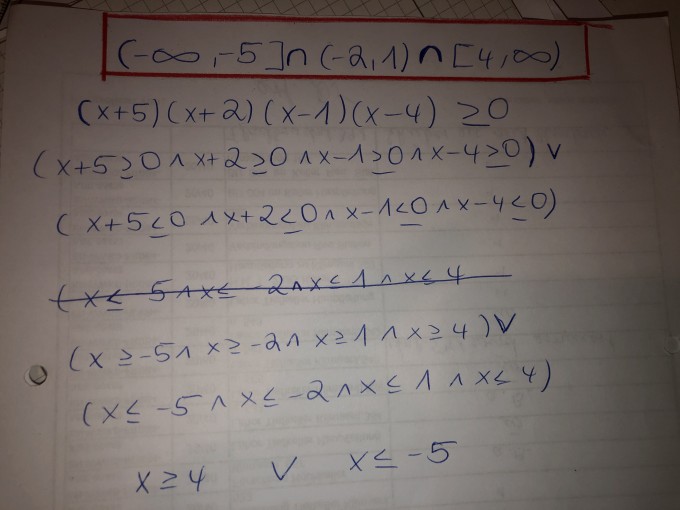 (-∞,-5]∩(-2,1)∩[4,∞)
(x+5)(x+2)(x-1)(x-4) ≥0
(x+5≥0 ∧ x+2≥0 ∧ x-1≥0 ∧ x-4≥0) ∨
(x+5≤0 ∧ x+2≤0 ∧ x-1≤0 ∧ x-4≤0)
(x≤ -5 ∧ x≤ -2 ∧ x≤ 1 ∧ x≤ 4
(x ≥ -5 ∧ x ≥ -2 ∧ x ≥ 1 ∧ x ≥ 4) ∨
(x ≤ -5 ∧ x ≤ -2 ∧ x ≤ 1 ∧ x ≤ 4)
x ≥ 4 ∨ x ≤ -5